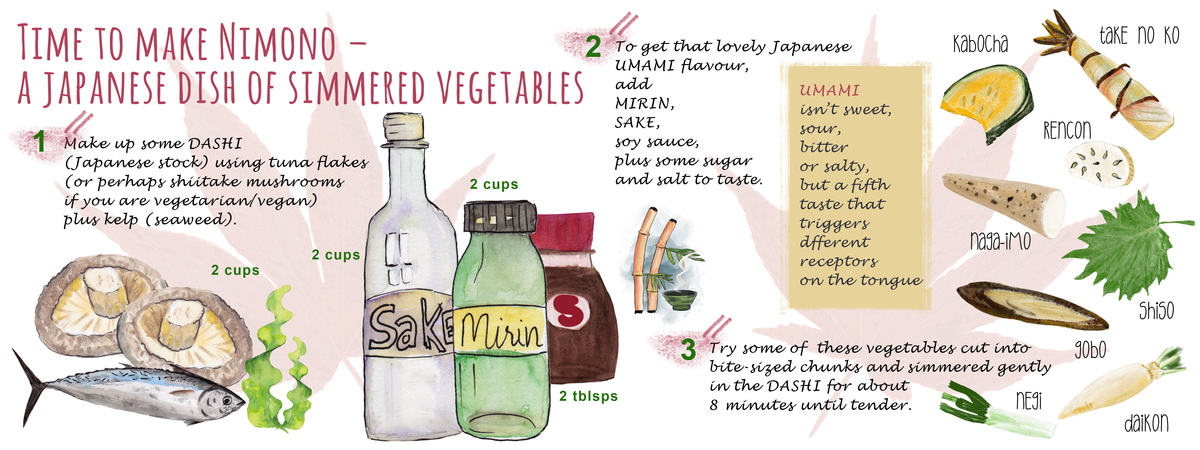 TIME TO MAKE NIMONO –
A JAPANESE DISH OF SIMMERED VEGETABLES
1
Make up some DASHI
(Japanese stock) using tuna flakes
(or perhaps shiitake mushrooms
if you are vegetarian/vegan)
plus kelp (seaweed).
2 cups
2 cups
2 cups
2 tblsps
Sake
Mirin
S
2
To get that lovely Japanese
UMAMI flavour,
add
MIRIN,
SAKE,
soy sauce,
plus some sugar
and salt to taste.
UMAMI
isn't sweet,
sour,
bitter
or salty,
but a fifth
taste that
triggers
dfferent
receptors
on the tongue
3
Try some of these vegetables cut into
bite-sized chunks and simmered gently
in the DASHI for about
8 minutes until tender.
Kabocha
take no ko
Rencon
naga-imo
shiso
gobo
negi
daikon